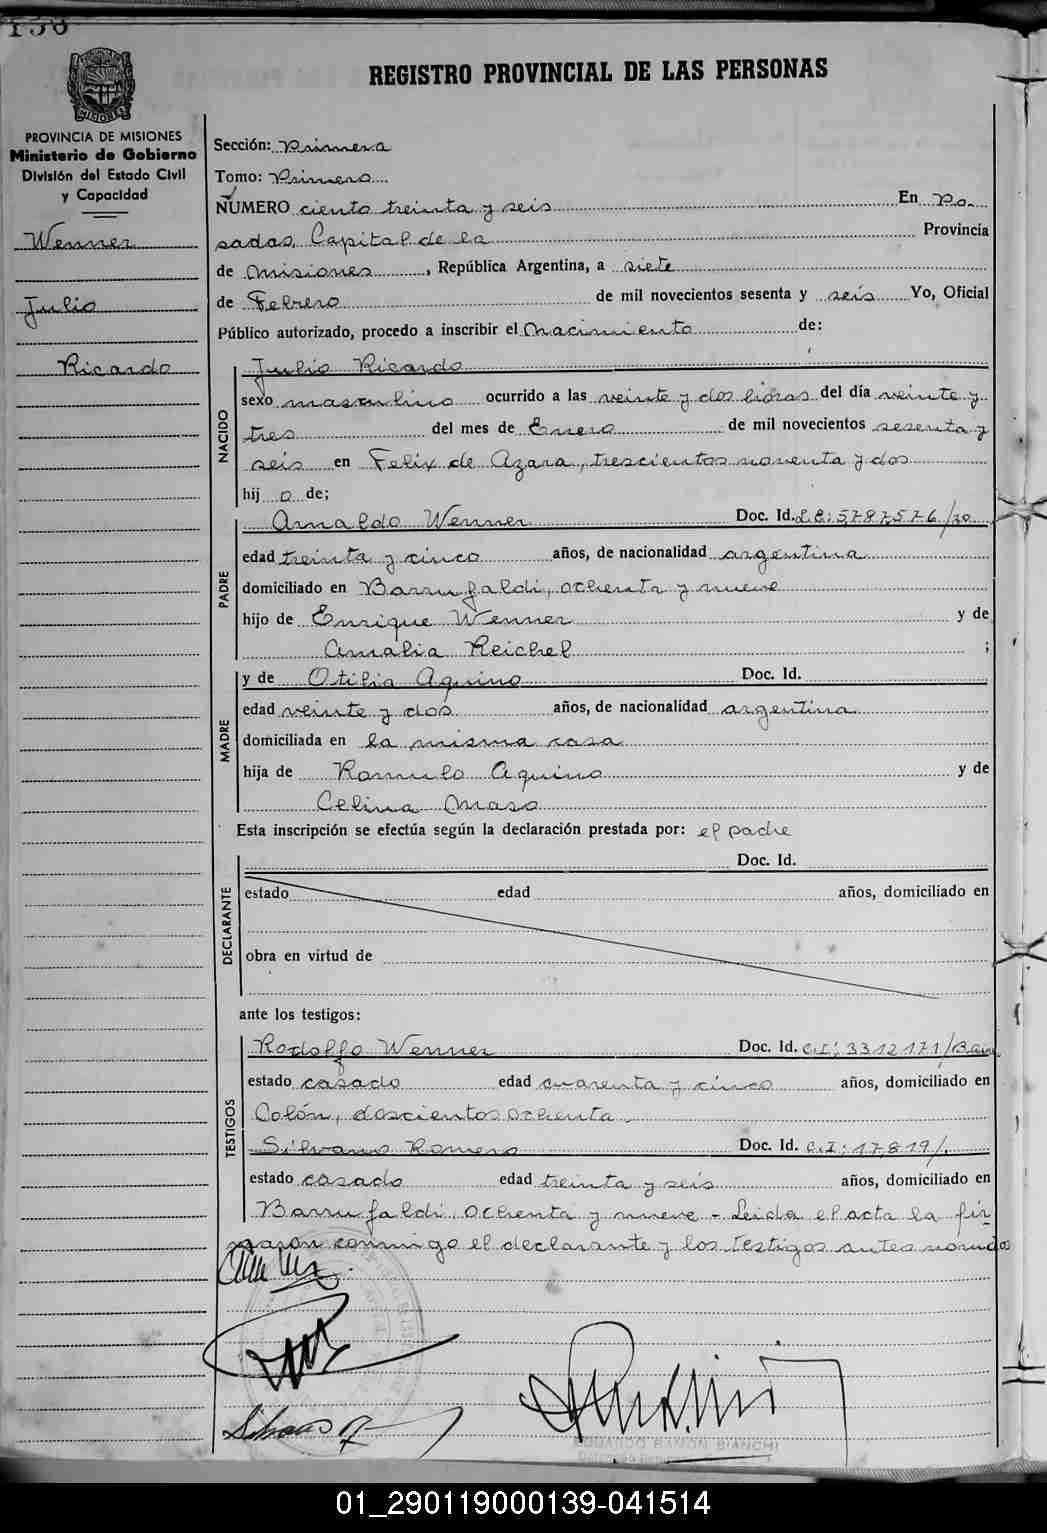 136
REGISTRO PROVINCIAL DE LAS PERSONAS
PROVINCIA DE MISIONES
Ministerio de Gobierno
División del Estado Civil
y Capacidad
Wenner
Julio
Ricardo
Sección: Primera
Tomo: Primero
NÚMERO ciento treinta y seis En Po-
sadas, Capital de la Provincia
de Misiones, República Argentina, a siete
de Febrero de mil novecientos sesenta y seis Yo, Oficial
Público autorizado, procedo a inscribir el nacimiento de:
NACIDO
Julio Ricardo
sexo masculino ocurrido a las veinte y dos horas del día veinte y
tres del mes de Enero de mil novecientos sesenta y
seis en Felix de Azara, trescientos noventa y dos
hij o de;
PADRE
Arnaldo Wenner Doc. Id. L.E: 5.787.576/
edad treinta y cinco años, de nacionalidad argentina
domiciliado en Barrufaldi, ochenta y nueve
hijo de Enrique Wenner y de
Amalia Reichel ;
MADRE
y de Otilia Aquino Doc. Id.
edad veinte y dos años, de nacionalidad argentina
domiciliada en la misma casa
hija de Romulo Aquino y de
Celina Maso
Esta inscripción se efectúa según la declaración prestada por: el padre
DECLARANTE
Doc. Id.
estado edad años, domiciliado en
obra en virtud de
ante los testigos:
TESTIGOS
Rodolfo Wenner Doc. Id. C.I: 3312171/
estado casado edad cuarenta y cinco años, domiciliado en
Colón, doscientos ochenta.
Silvano Romero Doc. Id. C.I: 17.819/.
estado casado edad treinta y seis años, domiciliado en
Barrufaldi, ochenta y nueve - Leida el acta la fir-
maron conmigo el declarante y los testigos antes
EDUARDO RAMON BIANCHI
01_290119000139-041514